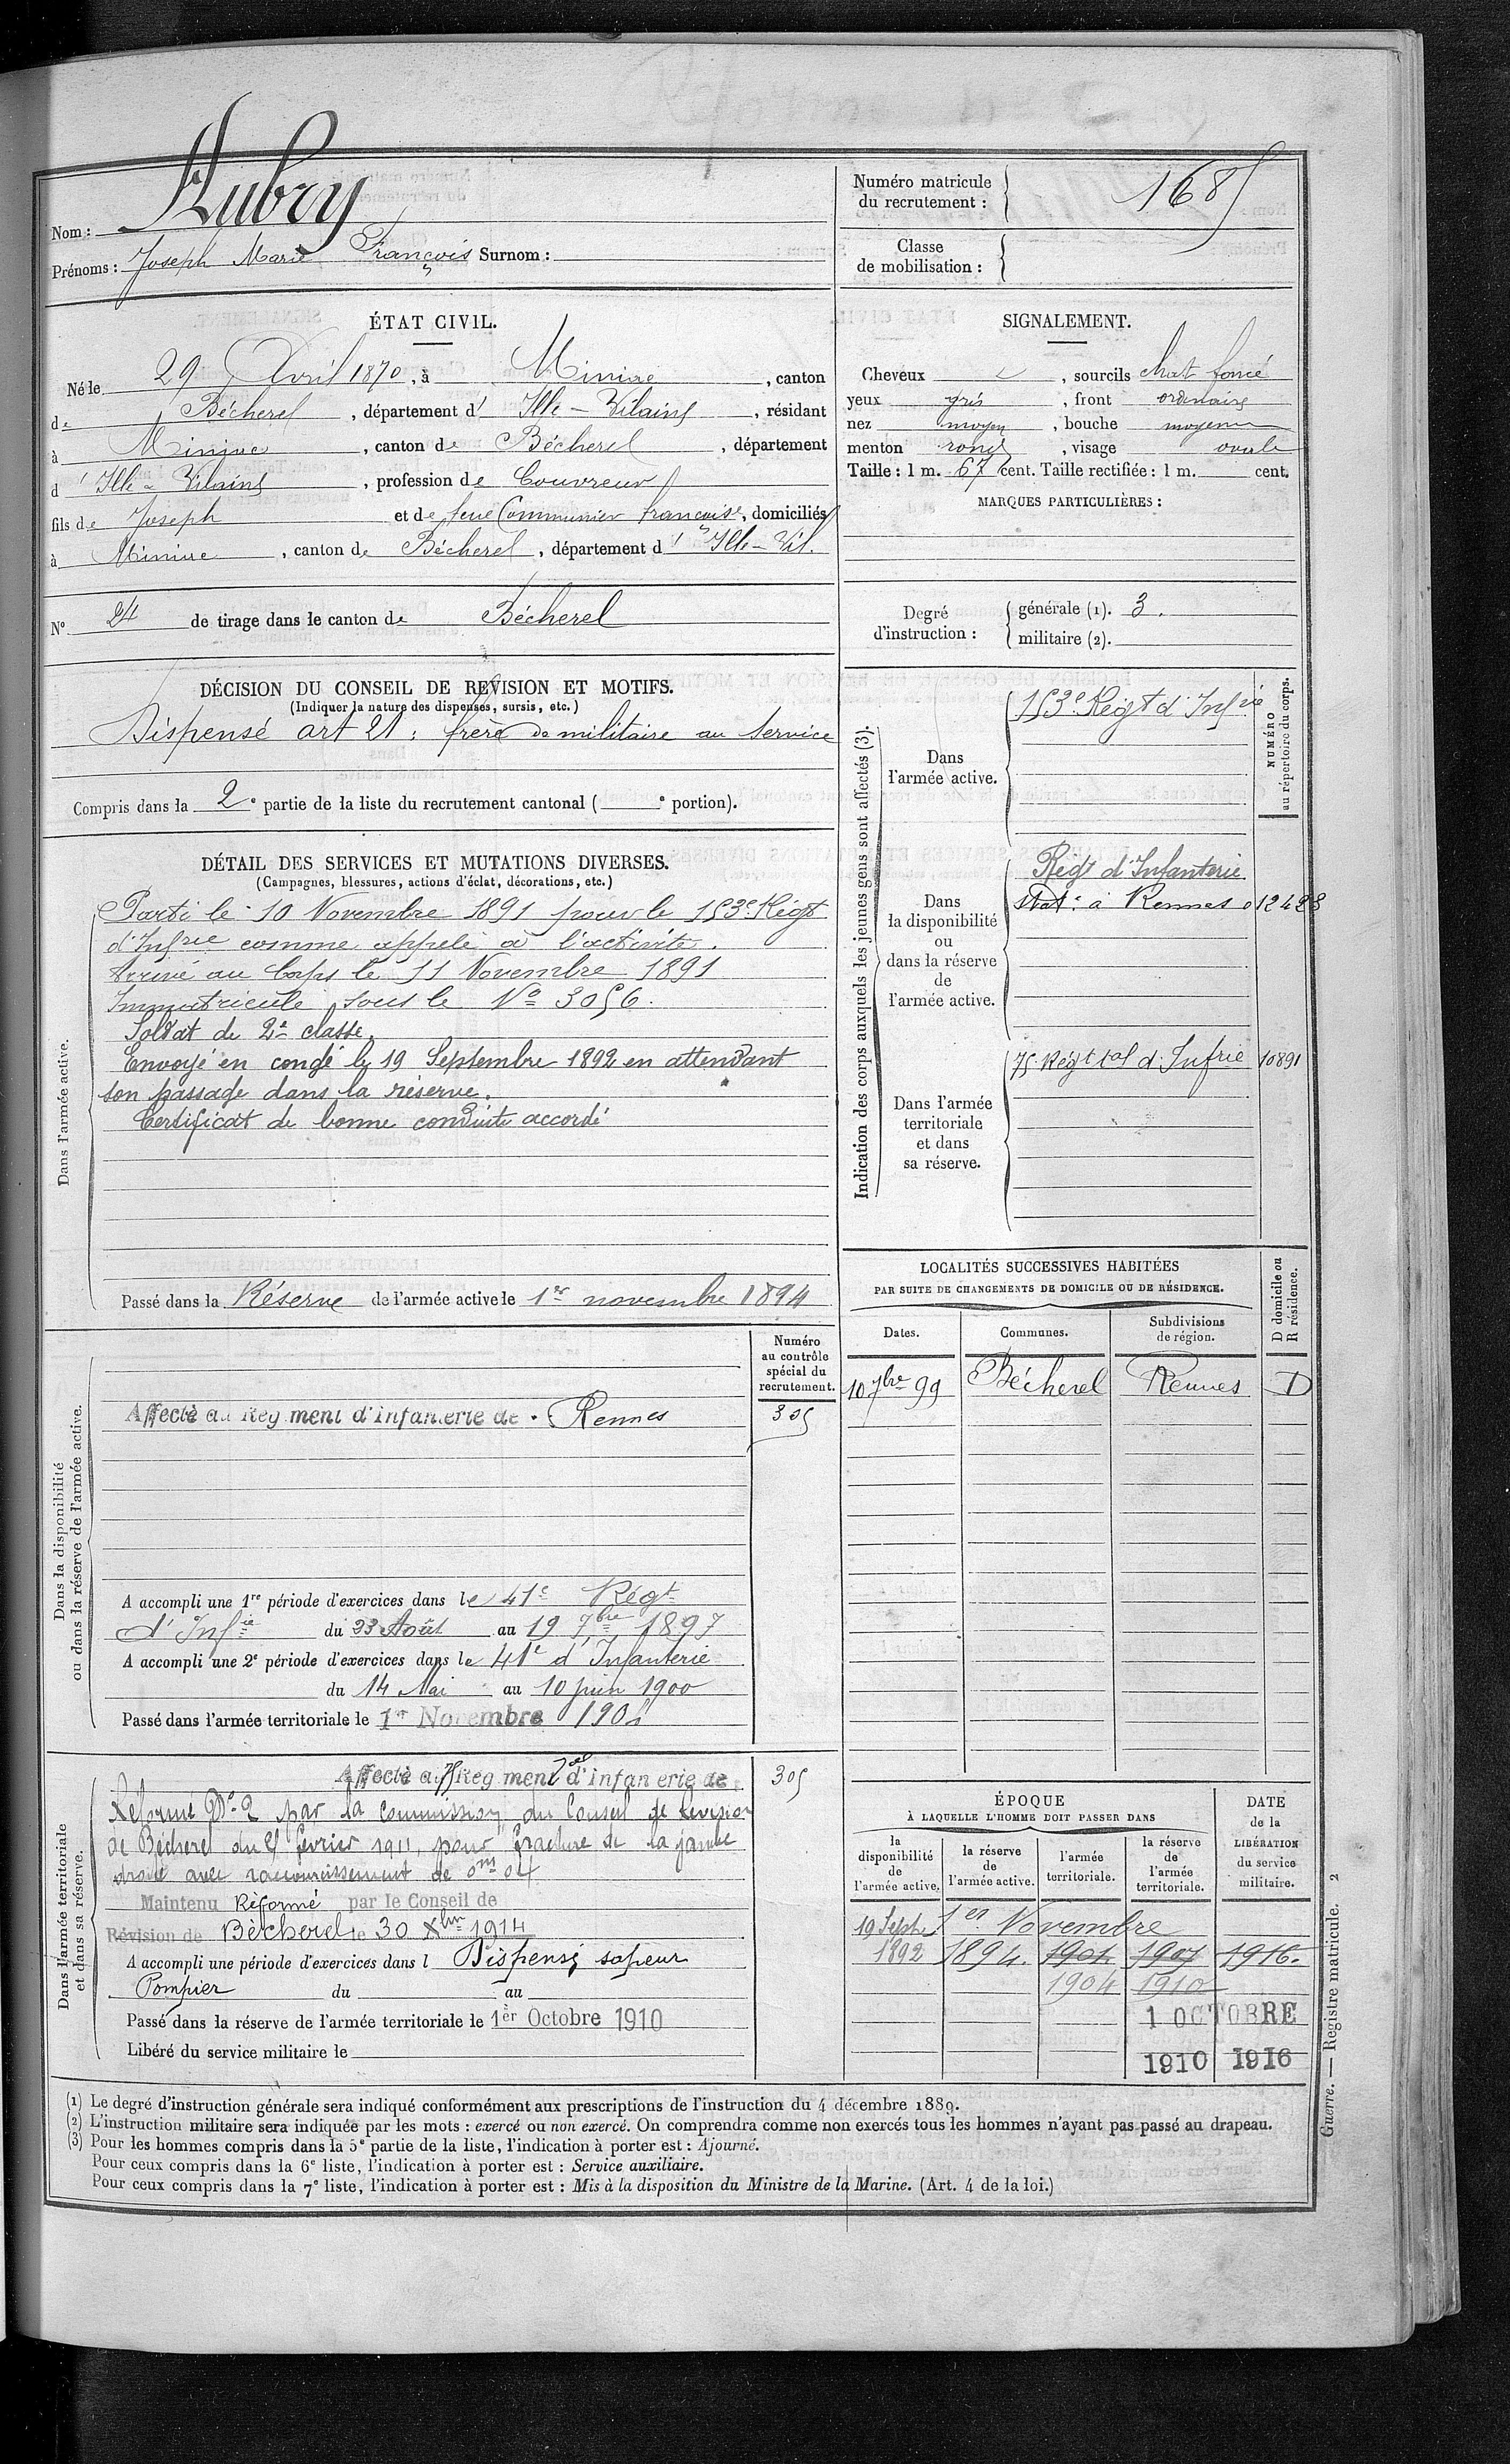 Nom : Aubry
Prénoms : Joseph Marie François Surnom :
Numéro matricule du recrutement : 1685
Classe de mobilisation :
ÉTAT CIVIL.
Né le 29 Avril 1870, à Miniac, canton
de Bécherel, département d' Ille-Vilaine, résidant
à Miniac, canton de Bécherel, département
d' Ille-Vilaine, profession de Couvreur
fils de Joseph et de feue Communier françoise, domiciliés
à Miniac, canton de Bécherel, département d' Ille-Vil.
N° 24 de tirage dans le canton de Bécherel
SIGNALEMENT.
Cheveux, sourcils chat foncé
yeux gris, front ordinaire
nez moyen, bouche moyenne
menton rond, visage ovale
Taille : 1 m. 67 cent. Taille rectifiée : 1 m. cent.
MARQUES PARTICULIÈRES :
Degré d'instruction : générale (1). 3.
militaire (2).
DÉCISION DU CONSEIL DE REVISION ET MOTIFS.
(Indiquer la nature des dispenses, sursis, etc.)
Dispensé art 21 : frère de militaire au Service
Compris dans la 2e partie de la liste du recrutement cantonal ( e portion).
DÉTAIL DES SERVICES ET MUTATIONS DIVERSES.
(Campagnes, blessures, actions d'éclat, décorations, etc.)
Dans l'armée active.
Parti le 10 Novembre 1891 pour le 153e Régt
d'Infrie comme appelé à l'activité.
Arrivé au Corps le 11 Novembre 1891
Immatriculé sous le No 3056.
Soldat de 2e classe.
Envoyé en congé le 19 Septembre 1892 en attendant
son passage dans la réserve.
Certificat de bonne conduite accordé
Passé dans la Réserve de l'armée active le 1er novembre 1894
Indication des corps auxquels les jeunes gens sont affectés (3).
NUMÉRO au répertoire du corps.
Dans l'armée active.
153e Régt d'Infrie
Dans la disponibilité ou dans la réserve de l'armée active.
Régt d'Infanterie
Stat. à Rennes 12428
Dans l'armée territoriale et dans sa réserve.
75 Régt tal d'Infrie 10891
LOCALITÉS SUCCESSIVES HABITÉES
PAR SUITE DE CHANGEMENTS DE DOMICILE OU DE RÉSIDENCE.
Dates. Communes. Subdivisions de région. D domicile ou R résidence.
10 7bre 99 Bécherel Rennes D
Dans la disponibilité ou dans la réserve de l'armée active.
Numéro au contrôle spécial du recrutement.
Affecté au Régiment d'Infanterie de Rennes 305
A accompli une 1re période d'exercices dans le 41e Régt
d'Infie du 23 Août au 19 7bre 1897
A accompli une 2e période d'exercices dans le 41e d'Infanterie
du 14 Mai au 10 juin 1900
Passé dans l'armée territoriale le 1er Novembre 1904
Dans l'armée territoriale et dans sa réserve.
Affecté au 75 Régiment Tal d'Infanterie de 305
Réformé No 2 par la commission du Conseil de Revision
de Bécherel du février 1911, pour fracture de la jambe
droite avec raccourcissement de 0m04
Maintenu Réformé par le Conseil de
Révision de Bécherel le 30 Xbre 1914
A accompli une période d'exercices dans l Dispensé sapeur
Pompier du au
Passé dans la réserve de l'armée territoriale le 1er Octobre 1910
Libéré du service militaire le
ÉPOQUE
À LAQUELLE L'HOMME DOIT PASSER DANS
la disponibilité de l'armée active. la réserve de l'armée active. l'armée territoriale. la réserve de l'armée territoriale.
DATE de la LIBÉRATION du service militaire.
19 Sept. 1er Novembre
1892 1894. 1901 1907 1916.
1904 1910
1 OCTOBRE
1910 1916
(1) Le degré d'instruction générale sera indiqué conformément aux prescriptions de l'instruction du 4 décembre 1889.
(2) L'instruction militaire sera indiquée par les mots : exercé ou non exercé. On comprendra comme non exercés tous les hommes n'ayant pas passé au drapeau.
(3) Pour les hommes compris dans la 5e partie de la liste, l'indication à porter est : Ajourné.
Pour ceux compris dans la 6e liste, l'indication à porter est : Service auxiliaire.
Pour ceux compris dans la 7e liste, l'indication à porter est : Mis à la disposition du Ministre de la Marine. (Art. 4 de la loi.)
Guerre. — Registre matricule. 2